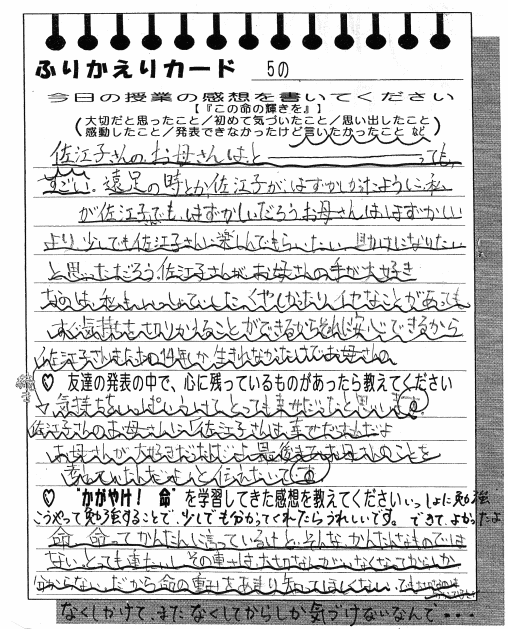 ふりかえりカード 5の
今日の授業の感想を書いてください
【『この命の輝きを』】
(大切だと思ったこと/初めて気づいたこと/思い出したこと
感動したこと/発表できなかったけど言いたかったこと など)
佐江子さんのお母さんはと っても
すごい。遠足の時とか佐江子が、はずかしがったように私
が佐江子でも、はずかしいだろうお母さんははずかしい
より、少しでも佐江子さんに楽しんでもらいたい、助けになりたい
と思っただろう佐江子さんがお母さんの手が大好き
なのは、私もいっしょでした、くやしかったり、イヤなことがあっても
すぐ気持ちをきりかえることができるからそれに安心できるから
佐江子さんも 14年しか生きれなかったけでお母さんの
♡ 友達の発表の中で、心に残っているものがあったら教えてください
気持ちをいっぱい とっても幸せだったと思います
佐江子さんのお母さんに「佐江子さんは、幸せだったんだよ
お母さんが大好き 最後まで お母さんのことを
と伝えたいです
♡ “かがやけ! 命”を学習してきた感想を教えてください いっしょに勉強
こうやって勉強することで、少しでも分かってくれたらうれしいです。できて、よかったよ
命、命ってかんたんに言っているけど、そんな、かんたんなものでは
ない、とっても重たい、その重さは、 なくなってからしか
分からない、だから命の重さをあまり知ってほしくない、でも
なくしかけて、まだなくしてからしか気づけないなんで・・・